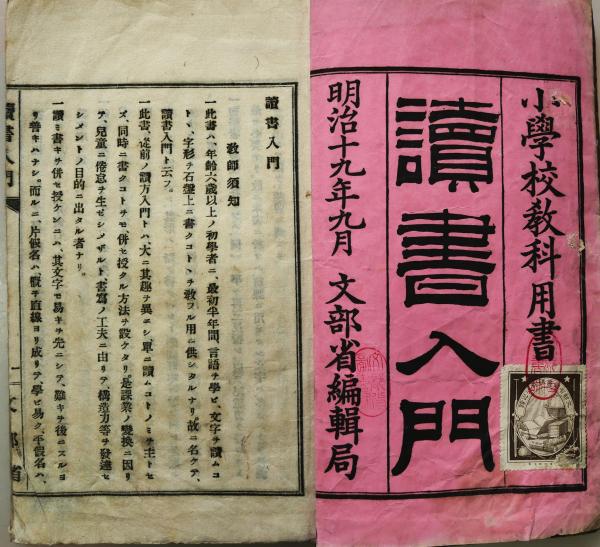 小學校敎科用書
讀書入門
明治十九年九月 文部省編輯局
讀書入門
敎師須知
一此書ハ、年齡六歲以上ノ初學者ニ、最初半年間、言語ヲ學ビ、文字ヲ讀ムコ
トヽ、字形ヲ石盤上ニ書クコトヽヲ敎フル用ニ供シタルナリ。故ニ名ケテ、
讀書入門ト云フ。
一此書、從前ノ讀方入門トハ、大ニ其趣ヲ異ニシ、單ニ讀ムコトノミヲ主トセ
ズ、同時ニ書クコトヲモ、併セ授クル方法ヲ設ケタリ。是課業ノ變換ニ因リ
テ、兒童ニ倦怠ヲ生ゼシメザルト、書寫ノ工夫ニ由リテ、構造力等ヲ發達セ
シメントノ目的ニ出タル者ナリ。
一讀ミ書キヲ併セ授ケンニハ、其文字ノ易キヲ先ニシテ、難キヲ後ニスルヨ
リ善キハナシ。而ルニ、片假名ハ、槪子直線ヨリ成リテ學ビ易ク、平假名ハ、
讀書入門
一
文部省